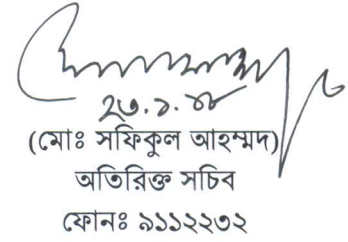 ২৩.১.১৮
(মোঃ সফিকুল আহম্মদ)
অতিরিক্ত সচিব
ফোনঃ ৯১১২২৩২